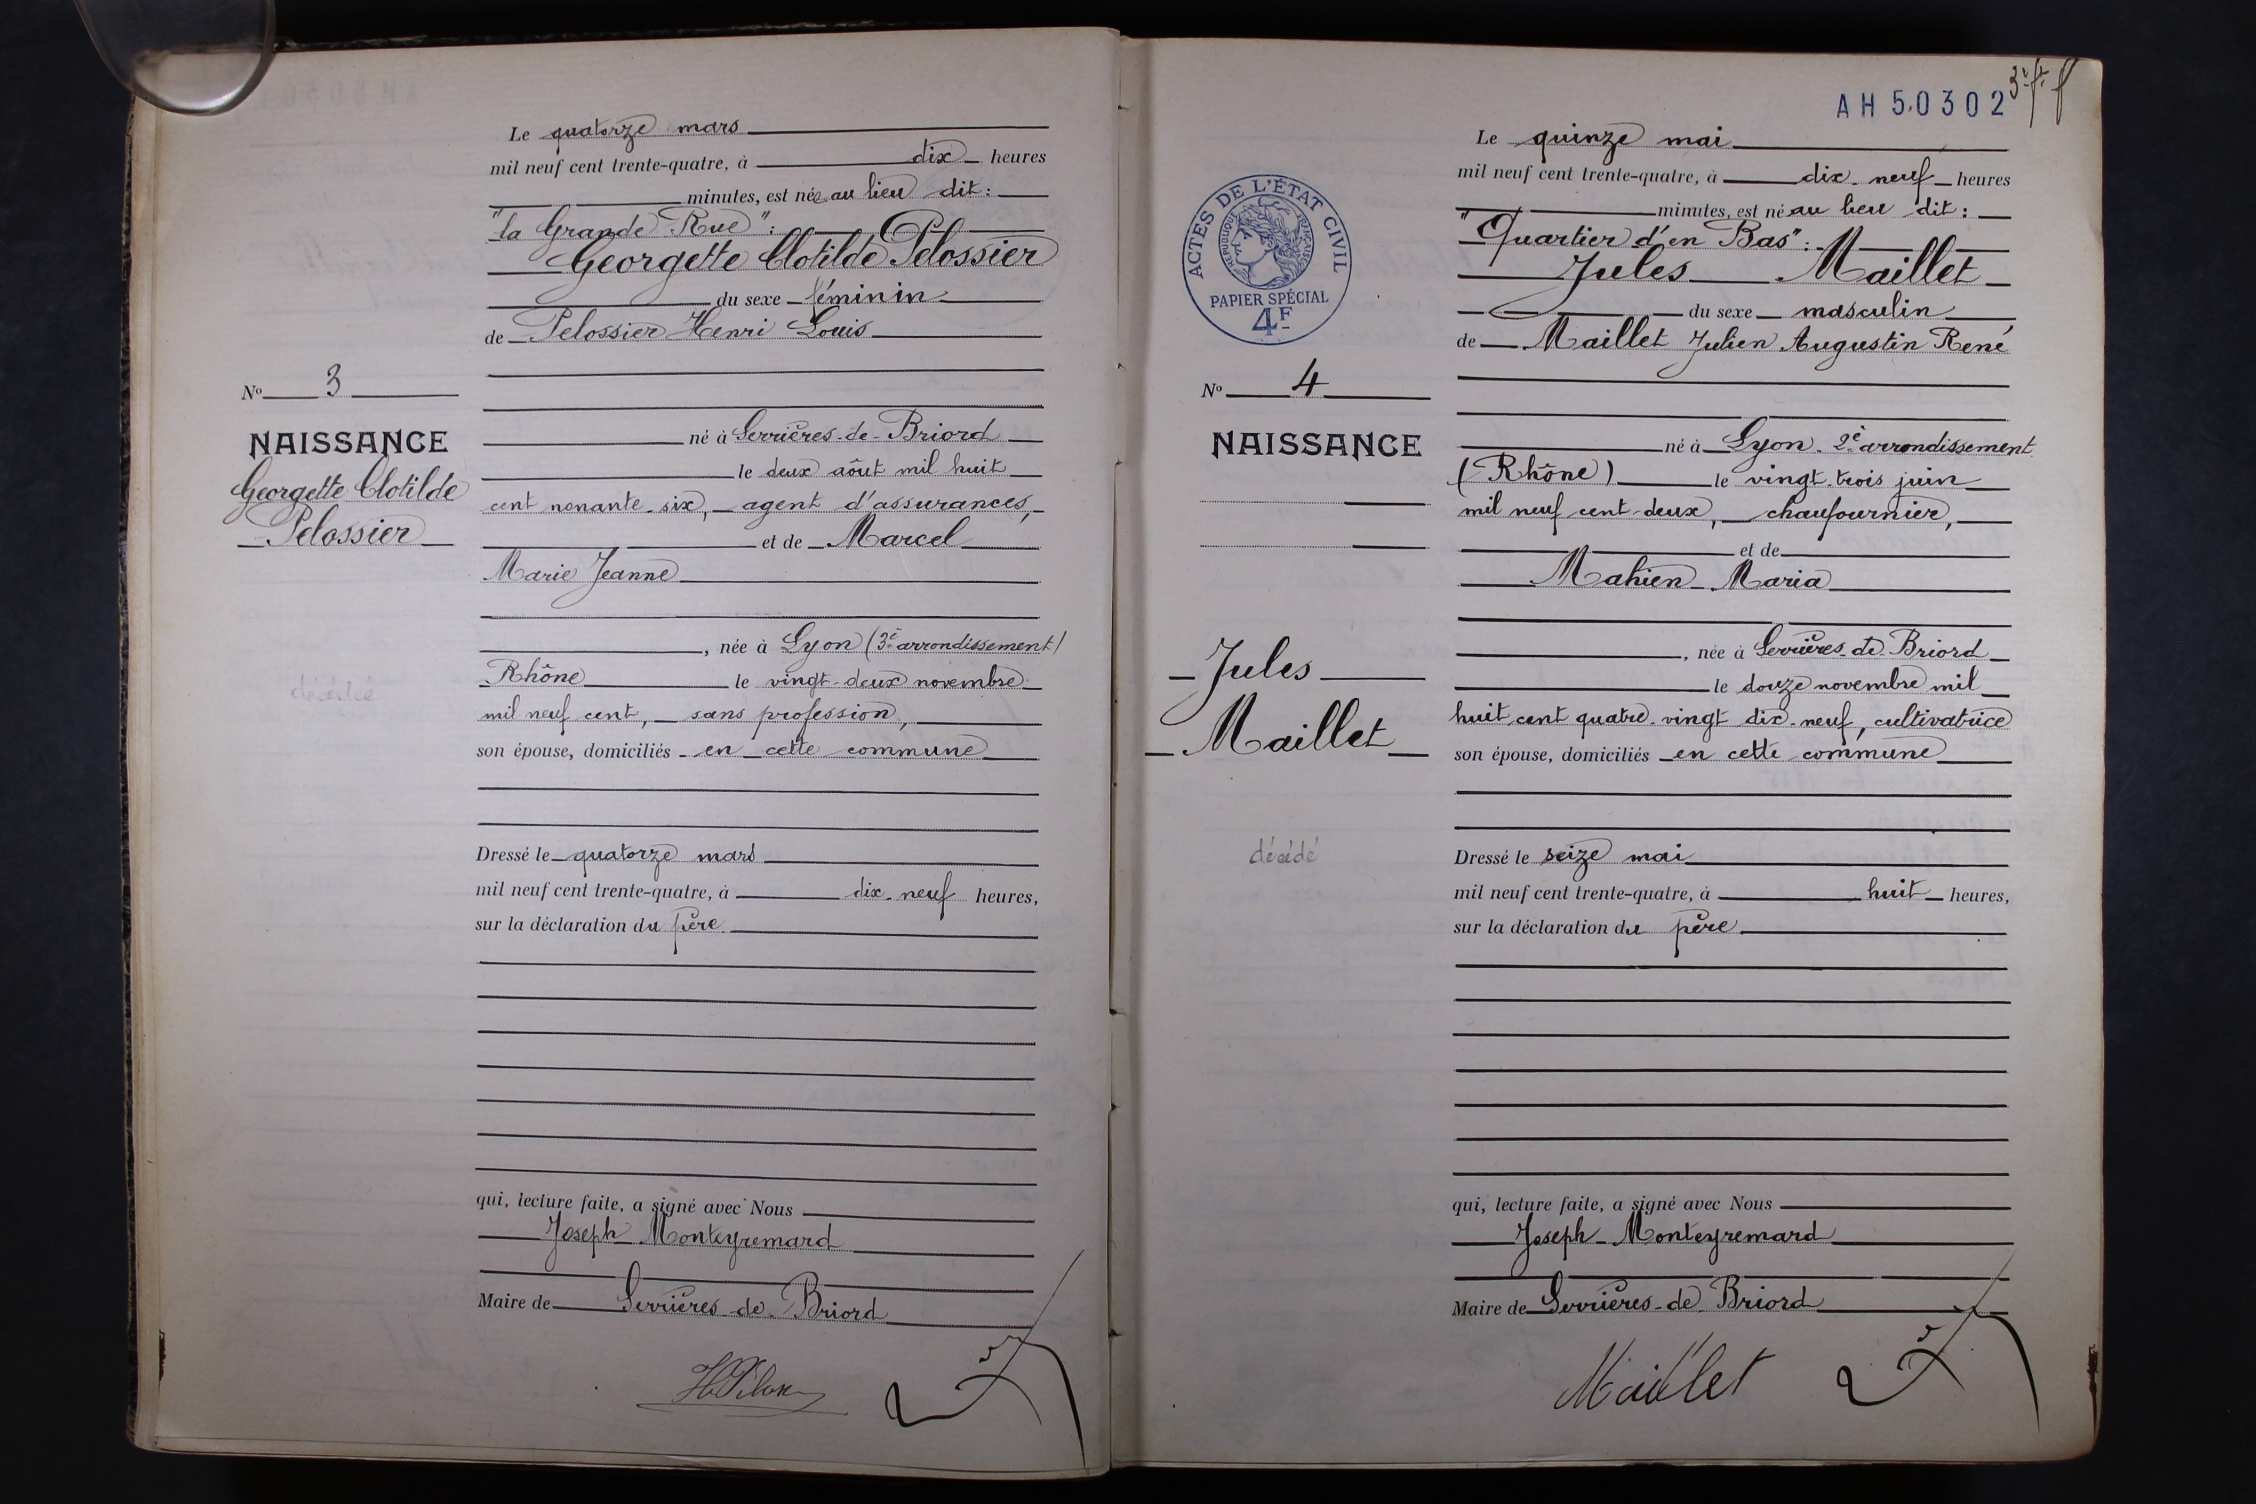 Le quatorze mars
mil neuf cent trente-quatre, à dix heures
minutes, est née au lieu dit :
"la Grande Rue" :
Georgette Clotilde Pelossier
du sexe féminin
de Pelossier Henri Louis
No 3
NAISSANCE
Georgette Clotilde
Pelossier
né à Serrières-de-Briord
le deux août mil huit
cent nonante-six, agent d'assurances,
et de Marcel
Marie Jeanne
, née à Lyon (3e arrondissement)
Rhône le vingt-deux novembre
mil neuf cent, sans profession,
son épouse, domiciliés en cette commune
décédée
Dressé le quatorze mars
mil neuf cent trente-quatre, à dix-neuf heures,
sur la déclaration du père
qui, lecture faite, a signé avec Nous
Joseph Monteyremard
Maire de Serrières-de-Briord
AH 50302
Le quinze mai
mil neuf cent trente-quatre, à dix-neuf heures
minutes, est né au lieu dit :
"Quartier d'en Bas" :
Jules Maillet
du sexe masculin
de Maillet Julien Augustin René
ACTES DE L'ÉTAT CIVIL
RÉPUBLIQUE FRANÇAISE
PAPIER SPÉCIAL
4F
No 4
NAISSANCE
Jules
Maillet
né à Lyon 2e arrondissement
(Rhône) le vingt-trois juin
mil neuf cent-deux, chaufournier,
et de
Mahien Maria
, née à Serrières-de-Briord
le douze novembre mil
huit cent quatre-vingt dix-neuf, cultivatrice
son épouse, domiciliés en cette commune
décédé
Dressé le seize mai
mil neuf cent trente-quatre, à huit heures,
sur la déclaration du père
qui, lecture faite, a signé avec Nous
Joseph Monteyremard
Maire de Serrières-de-Briord
Maillet